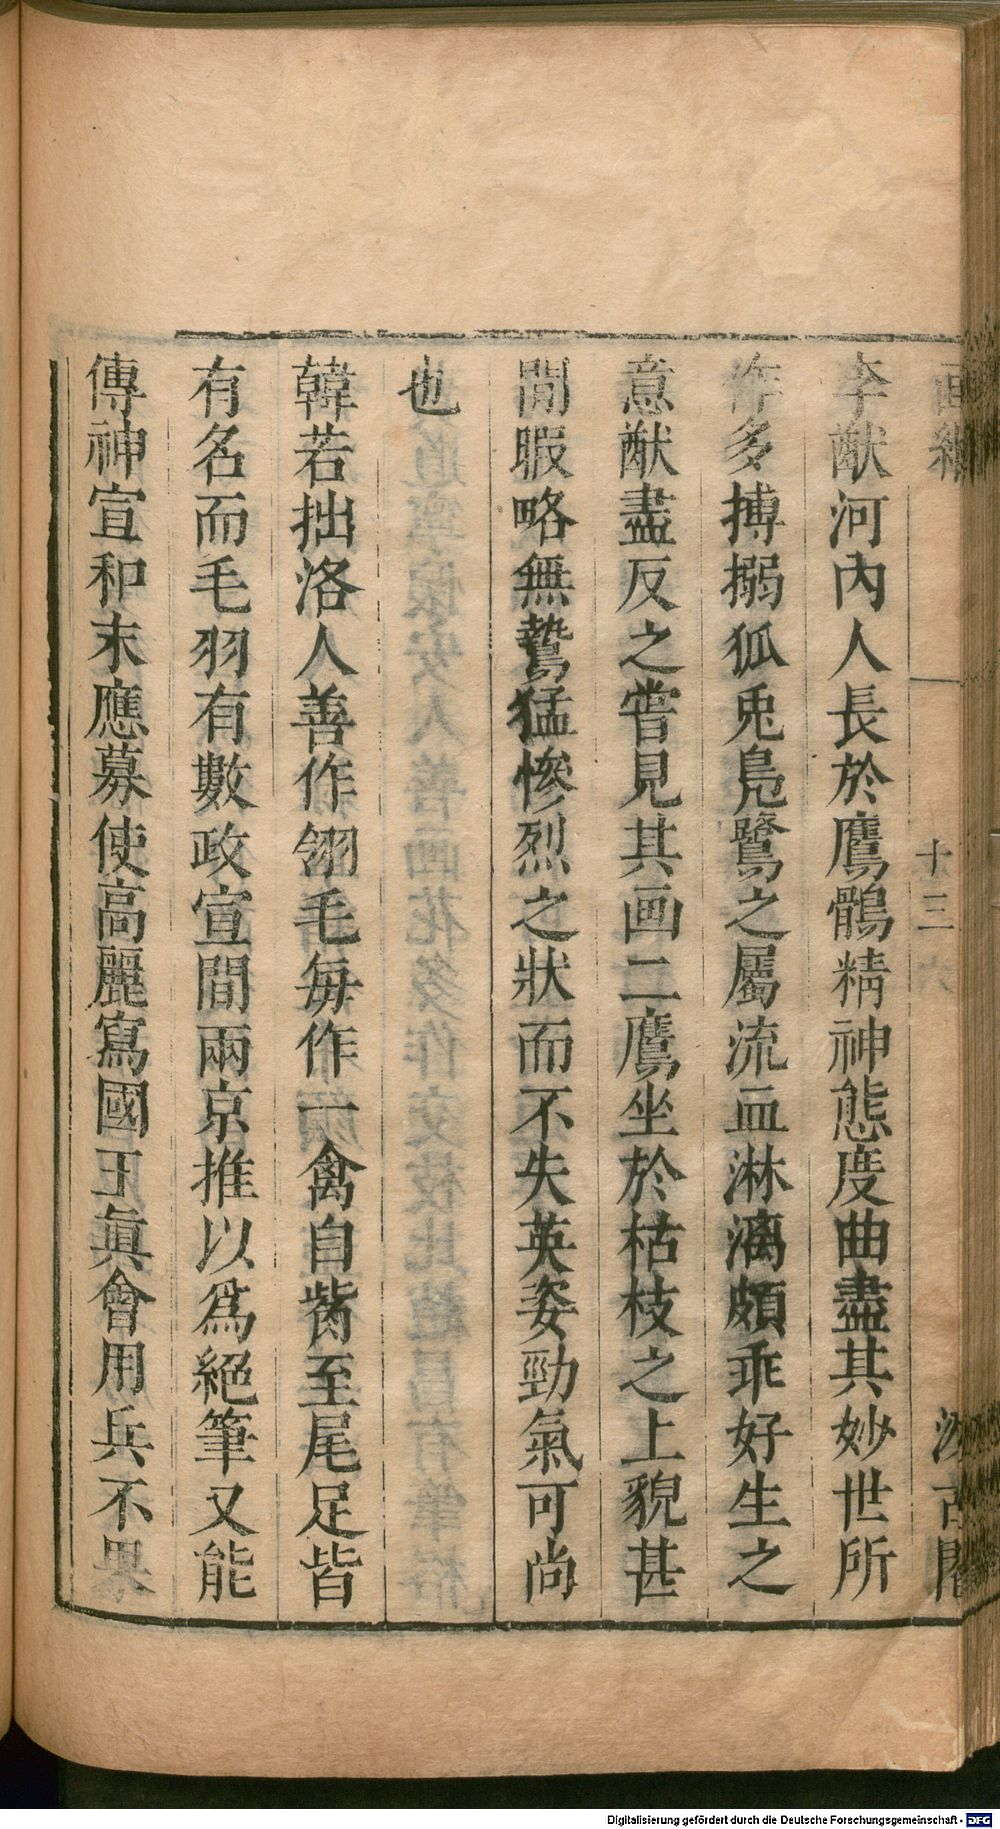 十三
汲古閣
李猷河內人長於鷹鶻精神態度曲盡其妙世所
作多搏搦狐兎鳧鷺之屬流血淋漓頗乖好生之
意猷盡反之嘗見其画二鷹坐於枯枝之上貌甚
閒暇略無鷙猛慘烈之狀而不失英姿勁氣可尚
也
韓若拙洛人善作翎毛每作一禽自觜至尾足皆
有名而毛羽有數政宣間兩京推以爲絕筆又能
傳神宣和末應募使高麗寫國王眞會用兵不果
Digitalisierung gefördert durch die Deutsche Forschungsgemeinschaft - DFG